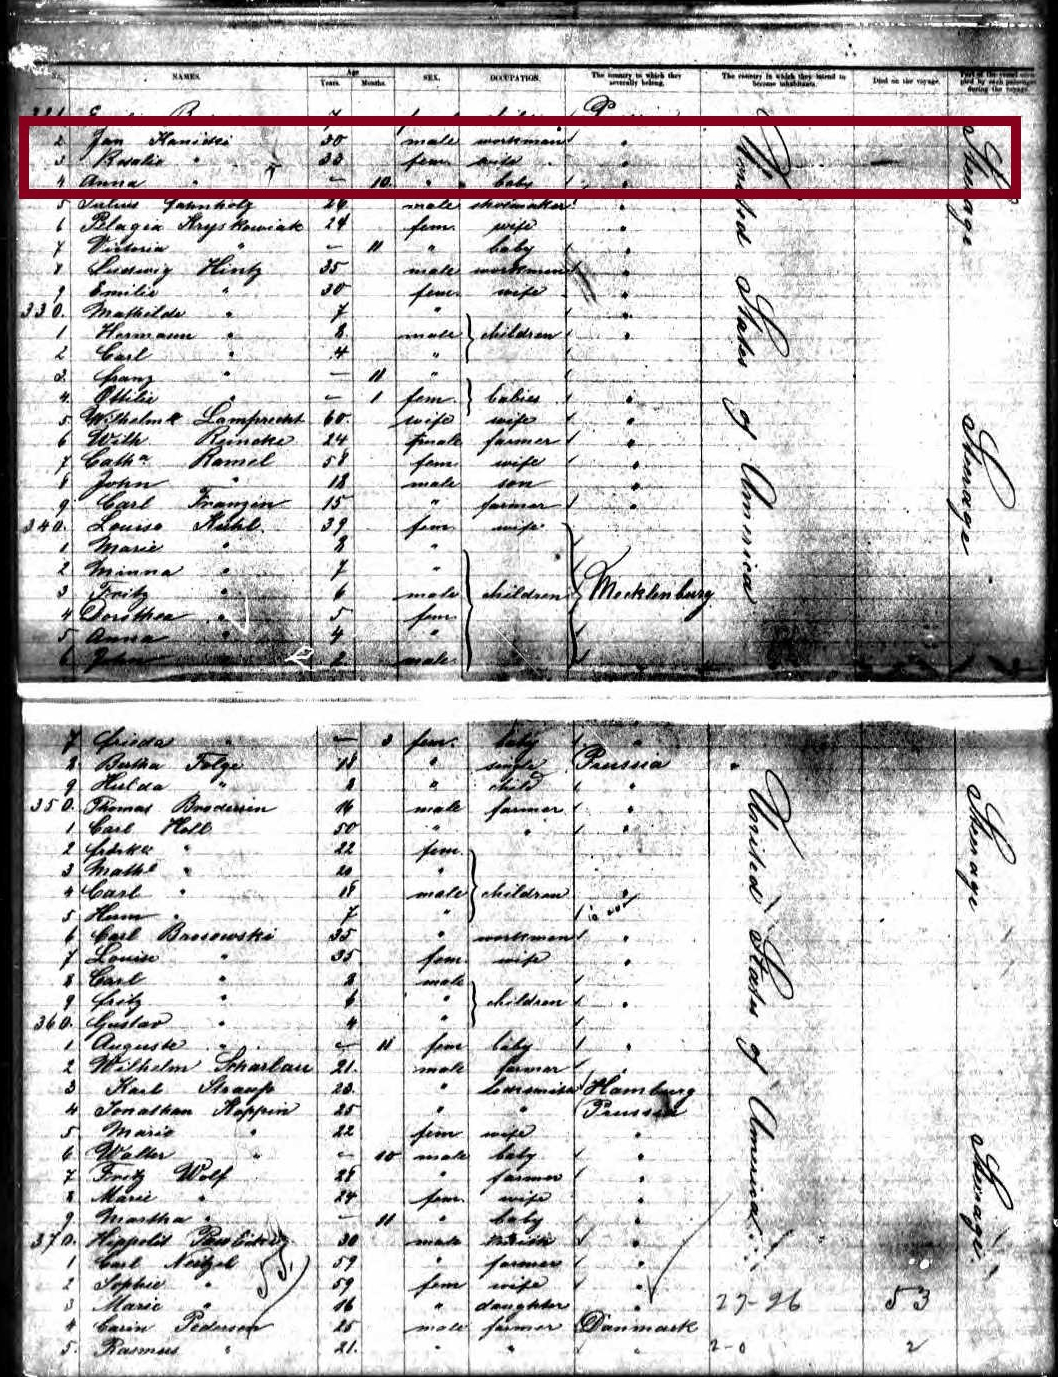 NAMES. Age Years. Months. SEX. OCCUPATION. The country to which they severally belong. The country in which they intend to become inhabitants. Died on the voyage. Part of the vessel occupied by each passenger during the voyage.
2 Jan Kanicki 30 male workman "
3 Rosalie " 33 fem. wife "
4 Anna " — 10. " baby "
5 Julius 26 male shoemaker "
6 Pelagia Kryskowiak 24 fem. wife "
7 Victoria " — 11 " baby "
8 Ludewig Hintz 35 male workman "
9 Emilie " 30 fem. wife "
330. Mathilde " 7 "
1 Hermann " 8 male children "
2 Carl " 4 "
3 Franz " — 11 "
4. Ottilie " — 1 fem. babies "
5 Lamprecht 60. wife wife "
6 Wilh. Reincke 24 male farmer "
7 Catha Ramel 58 fem. wife "
8 John " 18 male son "
9 Carl Franzin 15 " farmer "
340. Louise Kuhl. 39 fem. wife
1 Marie " 8 "
2 Minna " 7 "
3 Fritz " 6 male children Mecklenburg
4 Dorothea " 5 fem.
5 Anna " 4 "
6 John " 2 male
United States of America
Steerage
Steerage
7 Frieda " — 3 fem. baby "
8 Bertha Folge 18 " single Prussia "
9 Hulda " 8 " child "
350. Thomas Brodersen 16 male farmer "
1 Carl Holl 50 " " "
2 " 22 fem.
3 Math. " 20 "
4 Carl " 18 male children "
5 Herm " 7 "
6 Carl Brosowski 35 " workman "
7 Louise " 35 fem. wife "
8 Carl " 8 male
9 Fritz " 6 " children "
360. Gustav " 4 "
1 Auguste " — 11 fem baby "
2 Wilhelm Scharlau 21. male farmer "
3 Karl 23. " Hamburg
4 Jonathan Koppin 25 " " Prussia
5 Marie " 22 fem. wife "
6 Walter " — 10 male baby "
7 Fritz Wolf 28 " farmer "
8 Marie " 24 fem. wife "
9 Martha " — 11 " baby "
370. Hippolit 30 male "
1 Carl Neitzel 59 " farmer "
2 Sophie " 59 fem wife "
3 Marie " 16 " daughter "
4 Carin Pedersen 25 male farmer Danmark
5. Rasmus " 21. " " "
United States of America
Steerage
Steerage
27-26 53
2-0 2